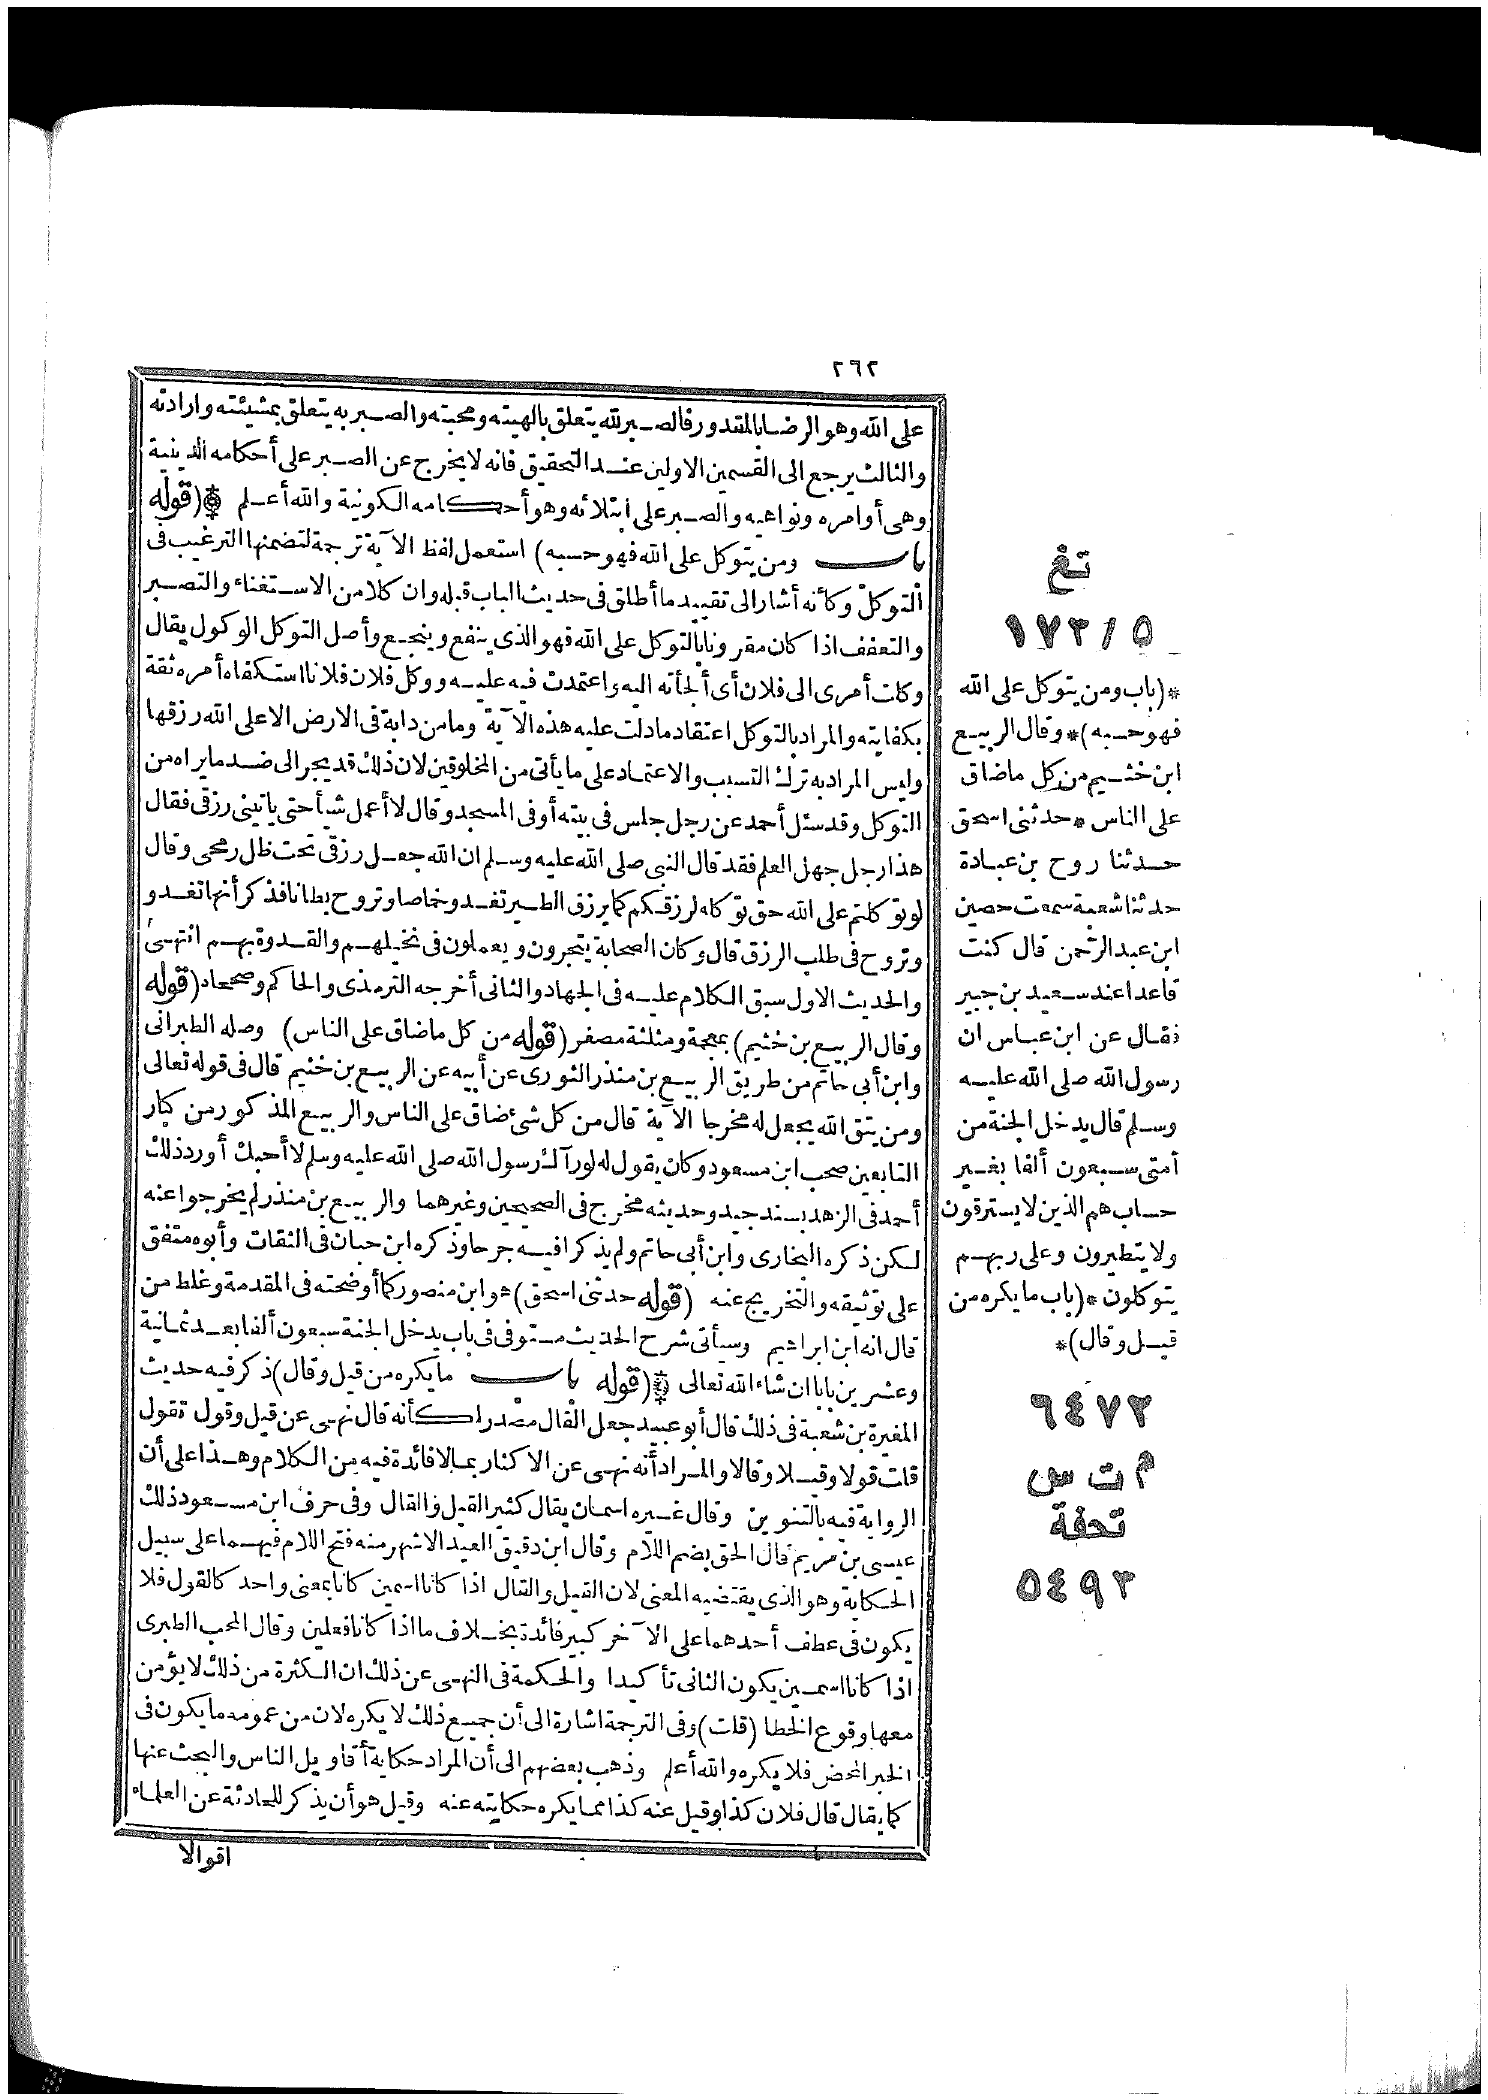 ٢٦٢
على الله وهو الرضا بالمقدور فالصبر لله يتعلق بالهيته ومحبته والصبر به يتعلق بمشيئته وارادته
والثالث يرجع الى القسمين الاولين عند التحقيق فانه لا يخرج عن الصبر على أحكامه الدينية
وهى أوامره ونواهيه والصبر على ابتلائه وهو أحكامه الكونية والله أعلم ۞ (قوله
باب ومن يتوكل على الله فهو حسبه) استعمل لفظ الآية ترجمة لتضمنها الترغيب فى
التوكل وكأنه أشار الى تقييد ما أطلق فى حديث الباب قبله وان كلا من الاستغناء والتصبر
والتعفف اذا كان مقرونا بالتوكل على الله فهو الذى ينفع وينجع وأصل التوكل الوكول يقال
وكلت أمرى الى فلان أى ألجأته اليه واعتمدت فيه عليه ووكل فلان فلانا استكفاه أمره ثقة
بكفايته والمراد بالتوكل اعتقاد ما دلت عليه هذه الآية وما من دابة فى الارض الا على الله رزقها
وليس المراد به ترك التسبب والاعتماد على ما يأتى من المخلوقين لان ذلك قد يجر الى ضد ما يراه من
التوكل وقد سئل أحمد عن رجل جلس فى بيته أو فى المسجد وقال لا أعمل شيأ حتى ياتينى رزقى فقال
هذا رجل جهل العلم فقد قال النبى صلى الله عليه وسلم ان الله جعل رزقى تحت ظل رمحى وقال
لو توكلتم على الله حق توكله لرزقكم كما يرزق الطير تغدو خماصا وتروح بطانا فذكر أنها تغدو
وتروح فى طلب الرزق قال وكان الصحابة يتجرون ويعملون فى نخيلهم والقدوة بهم انتهى
والحديث الاول سبق الكلام عليه فى الجهاد والثانى أخرجه الترمذى والحاكم وصححاه (قوله
وقال الربيع بن خثيم) بمعجمة ومثلثة مصغر (قوله من كل ما ضاق على الناس) وصله الطبرانى
وابن أبى حاتم من طريق الربيع بن منذر الثورى عن أبيه عن الربيع بن خثيم قال فى قوله تعالى
ومن يتق الله يجعل له مخرجا الآية قال من كل شئ ضاق على الناس والربيع المذكور من كبار
التابعين صحب ابن مسعود وكان يقول له لو رآك رسول الله صلى الله عليه وسلم لأحبك أورد ذلك
أحمد فى الزهد بسند جيد وحديثه مخرج فى الصحيحين وغيرهما والربيع بن منذر لم يخرجوا عنه
لكن ذكره البخارى وابن أبى حاتم ولم يذكرا فيه جرحا وذكره ابن حبان فى الثقات وأبوه متفق
على توثيقه والتخريج عنه (قوله حدثنى اسحق) هو ابن منصور كما أوضحته فى المقدمة وغلط من
قال انه ابن ابراهيم وسيأتى شرح الحديث مستوفى فى باب يدخل الجنة سبعون ألفا بعد ثمانية
وعشرين بابا ان شاء الله تعالى ۞ (قوله باب ما يكره من قيل وقال) ذكر فيه حديث
المغيرة بن شعبة فى ذلك قال أبو عبيد جعل القال مصدرا كأنه قال نهى عن قيل وقول تقول
قلت قولا وقيلا وقالا والمراد أنه نهى عن الاكثار بما لا فائدة فيه من الكلام وهذا على أن
الرواية فيه بالتنوين وقال غيره اسمان يقال كثير القيل والقال وفى حرف ابن مسعود ذلك
عيسى بن مريم قال الحق بضم اللام وقال ابن دقيق العيد الاشهر منه فتح اللام فيهما على سبيل
الحكاية وهو الذى يقتضيه المعنى لان القيل والقال اذا كانا اسمين كانا بمعنى واحد كالقول فلا
يكون فى عطف أحدهما على الآخر كبير فائدة بخلاف ما اذا كانا فعلين وقال المحب الطبرى
اذا كانا اسمين يكون الثانى تأكيدا والحكمة فى النهى عن ذلك ان الكثرة من ذلك لا يؤمن
معها وقوع الخطا (قلت) وفى الترجمة اشارة الى أن جميع ذلك لا يكره لان من عمومه ما يكون فى
الخبر المحض فلا يكره والله أعلم وذهب بعضهم الى أن المراد حكاية أقاويل الناس والبحث عنها
كما يقال قال فلان كذا وقيل عنه كذا مما يكره حكايته عنه وقيل هو أن يذكر للحادثة عن العلماء
اقوالا
تغ
٥ / ١٧٢
*(باب ومن يتوكل على الله
فهو حسبه)* وقال الربيع
ابن خثيم من كل ما ضاق
على الناس * حدثنى اسحق
حدثنا روح بن عبادة
حدثنا شعبة سمعت حصين
ابن عبد الرحمن قال كنت
قاعدا عند سعيد بن جبير
فقال عن ابن عباس ان
رسول الله صلى الله عليه
وسلم قال يدخل الجنة من
أمتى سبعون ألفا بغير
حساب هم الذين لا يسترقون
ولا يتطيرون وعلى ربهم
يتوكلون *(باب ما يكره من
قيل وقال)*
٦٤٧٣
م ت س
تحفة
٥٤٩٣